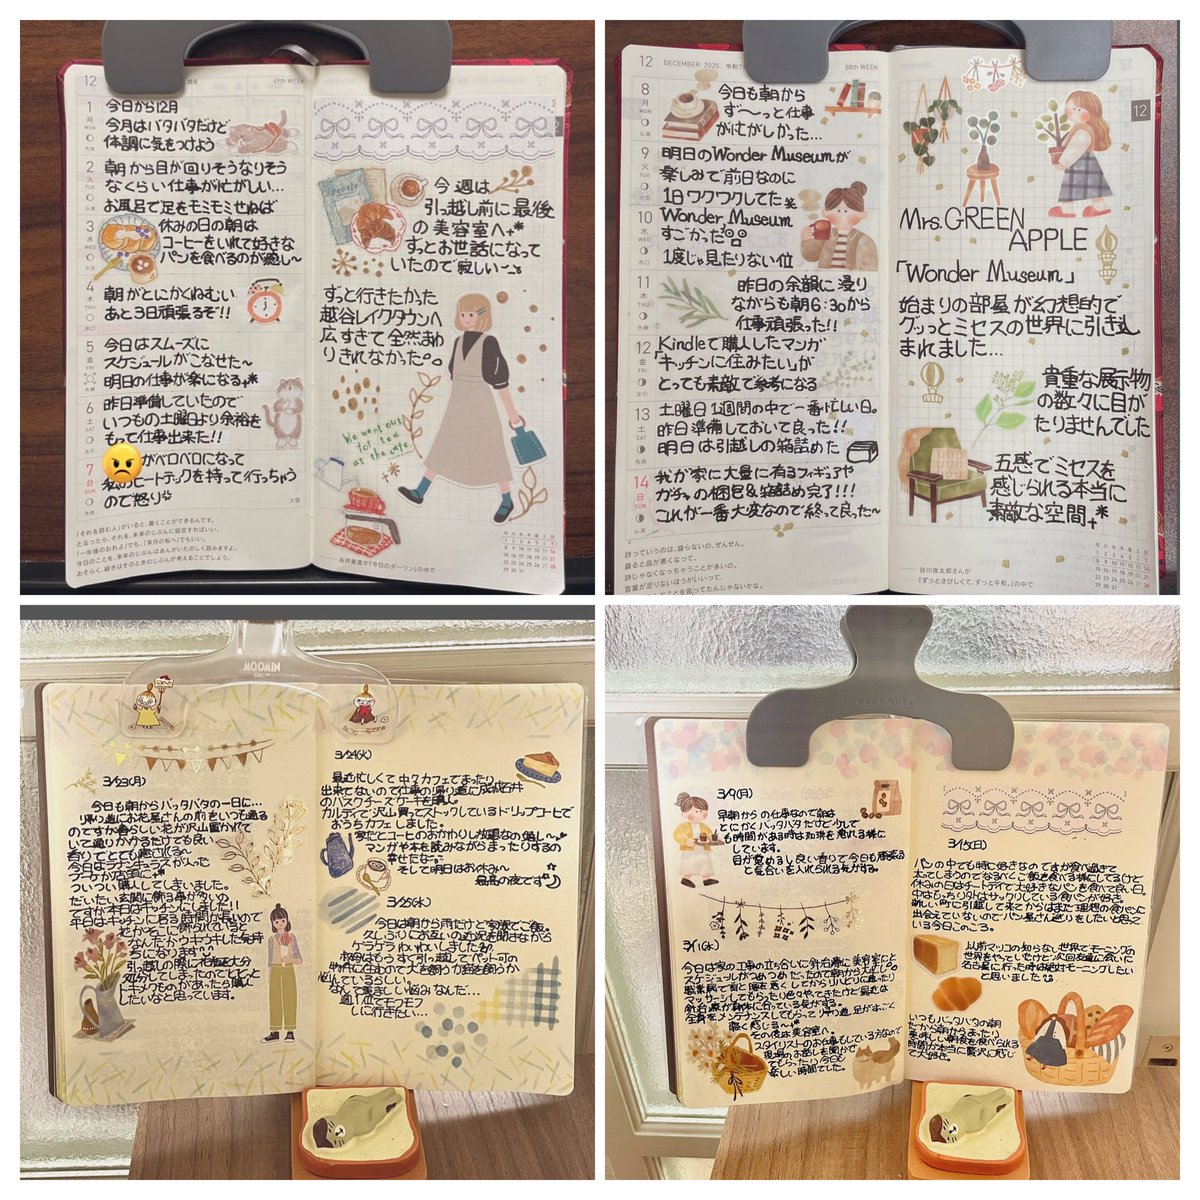 12
49th WEEK
1
月
MON
今日から12月
今月はバタバタだけど
体調に気をつけよう
2
火
TUE
朝から目が回りそうなりそう
なくらい仕事が忙がしい…
お風呂で足をモミモミせねば
3
水
WED
休みの日の朝は
コーヒーをいれて好きな
パンを食べるのが癒し〜
4
木
THU
朝がとにかくねむい
あと3日頑張るぞ!!
5
金
FRI
今日はスムーズに
スケジュールがこなせた〜
明日の仕事が楽になる
6
土
SAT
昨日準備していたので
いつもの土曜日より余裕を
もって仕事出来た!!
7
日
SUN
がベロベロになって
私のヒートテックを持って行っちゃう
ので怒り
大雪
「それを読む人」がいると、書くことができるんです。
となったら、それを、未来のじぶんに設定すればいい。
「一年後のおれよ」でも、「来月の私へ」でもいい。
今日のことを、未来のじぶんはあんがいたのしく読みますよ。
おそらく、続きはそのときのじぶんが考えることでしょう。
12
今週は
引っ越し前に最後
の美容室へ
ずっとお世話になって
いたので寂しい〜
ずっと行きたかった
越谷レイクタウンへ
広すぎて全然まわ
りきれなかった
We went out
for tea
at the cafe
糸井重里が『今日のダーリン』の中で
12
DECEMBER 2025
令和7
50th WEEK
8
月
MON
今日も朝から
ず〜っと仕事
が忙がしかった…
9
火
TUE
明日のWonder Museumが
楽しみで前日なのに
1日ワクワクしてた
10
水
WED
Wonder Museum
すごかった
1度じゃ見たりない位
11
木
THU
昨日の余韻に浸り
ながらも朝6:30から
仕事頑張った!!
12
金
FRI
Kindleで購入したマンガ
「キッチンに住みたい」が
とっても素敵で参考になる
13
土
SAT
土曜日1週間の中で一番忙しい日。
昨日準備しておいて良った!!
明日は引越しの箱詰めた
14
日
SUN
我が家に大量に有るフィギュアや
ガチャの梱包&箱詰め完了!!!
これが一番大変なので終って良った〜
詩っていうのは、盛らないの、ぜんぜん。
盛ると品が悪くなって、
詩じゃなくなっちゃうことが多いの。
言葉が足りないほうがいいって、
12
Mrs. GREEN
APPLE
「Wonder Museum」
始まりの部屋が幻想的で
グッっとミセスの世界に引き込
まれました…
貴重な展示物
の数々に目が
たりませんでした
五感でミセスを
感じられる本当に
素敵な空間
谷川俊太郎さんが
『ずっとさびしくて、ずっと平和。』の中で
MOOMIN
3/23(月)
今日も朝からバッタバタの一日に…
帰り道にお花屋さんの前をいつも通る
のですが春らしい花が沢山置かれて
いて通りかかるだけでも良い
香りでとても癒される〜
ついつい購入してしまいました。
だいたい玄関に飾る事が多いの
ですが本日はキッチンにしました!!
平日はキッチンに居る時間が長いので
お花がそこに飾られていると
なんだかウキウキした気持
ちになります
引っ越しの際に花瓶を大分
処分してしまったのでとっと
トキメクものがあったら購入
したいなと思っています。
3/24(火)
最近忙しくて中々カフェでまったり
出来てないので仕事の帰り道に成城石井
のバスクチーズケーキを購入。
カルディで沢山買ってストックしているドリップコーヒーで
おうちカフェしました。
家だとコーヒーのおかわりし放題なの嬉し〜
マンガや本を読みながらまったりするの
幸せだな。
そして明日はお休み〜
最高の夜です
3/25(水)
今日は朝から雨だけど実家でご飯。
久しぶりにお互いの近況を聞きながら
ケラケラわいわいしました
叔母はもうすぐ引っ越してペット可の
物件に住むので犬を飼うか猫を飼うか
悩んでいるそう
なんて羨ましい悩みなんだ…
遊びに行ってモフモフ
しに行きたい…
3/9(月)
早朝からの仕事なので朝は
とにかくバッタバタだけどそれで
も時間がある時は珈琲を淹れる様に
しています。
目が覚めるし良い香りで今日も頑張る
と気合いを入れられる気がする。
3/11(水)
今日は家の工事の立ち合いに針治療に美容室にと
スケジュールがつめつめだったので朝から大忙し。
職業病で首と腰を悪くしてからリハビリに通ったり
マッサージしてもらったり色々やってきたけど最近は
針治療が身体に合っている気がする。
全身をメンテナンスしてもらって帰り道、足がすっごく
軽く感じる〜
その後は美容室へ。
スタイリストのお仕事もしている方なので
現場のお話しを聞かせ
てもらったり今日も
楽しい時間でした。
3/15(日)
パンの中でも特に好きなのですが食べ過ぎて
太ってしまうのでなるべくご飯を食べる様にしてるけど
休みの日はチートデイで大好きなパンを食べて良い日。
新しい町に引越して来てからはまだ理想の食パンに
出会えていないのでパン屋さん巡りをしたいと思っている
今日このごろ。
以前マツコの知らない世界でモーニングの
世界をやっていたけど次回友達に会いに
名古屋に行った時は絶対モーニングしたい
と思いました
いつもバッタバタの朝
だから朝からまったり
美味しい朝食を食べられる
時間が本当に贅沢に感じ
て大好き。